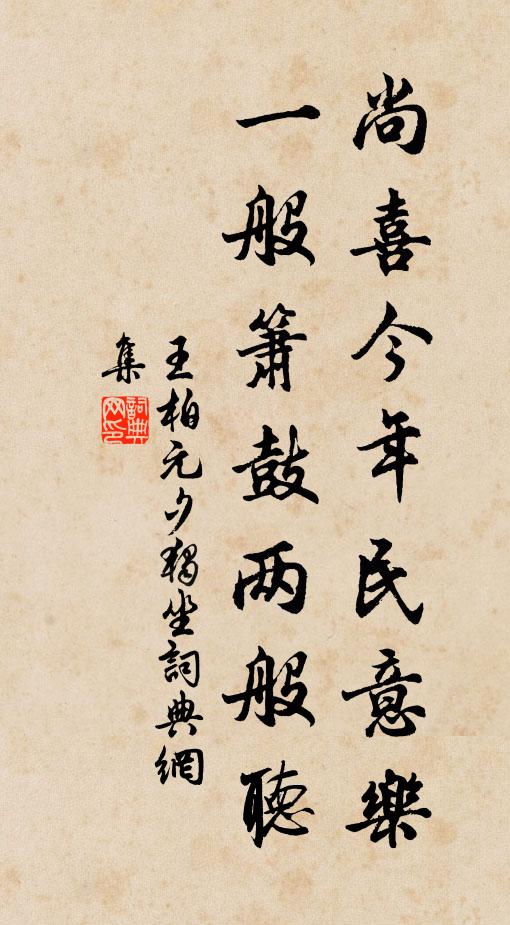 尚喜今年民意樂
一般簫鼓两般聽
王柏元夕獨坐詞典網
集
詞典网印